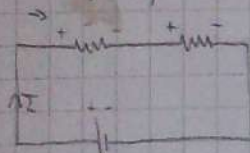 + - + -
I
+ -